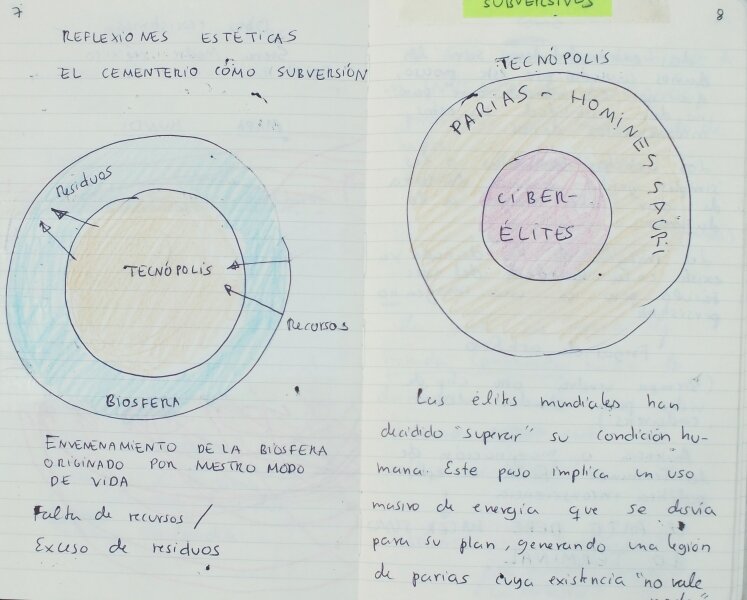 7
REFLEXIONES ESTÉTICAS
EL CEMENTERIO CÓMO SUBVERSIÓN
Residuos
TECNÓPOLIS
Recursos
BIOSFERA
ENVENENAMIENTO DE LA BIOSFERA
ORIGINADO POR NUESTRO MODO
DE VIDA
Falta de recursos /
Exceso de residuos
SUBVERSIVOS
8
TECNÓPOLIS
PARIAS - HOMINES SACRI
CIBER-
ÉLITES
Las élites mundiales han
decidido "superar" su condición hu-
mana. Este paso implica un uso
masivo de energía que se desvía
para su plan, generando una legión
de parias cuya existencia "no vale